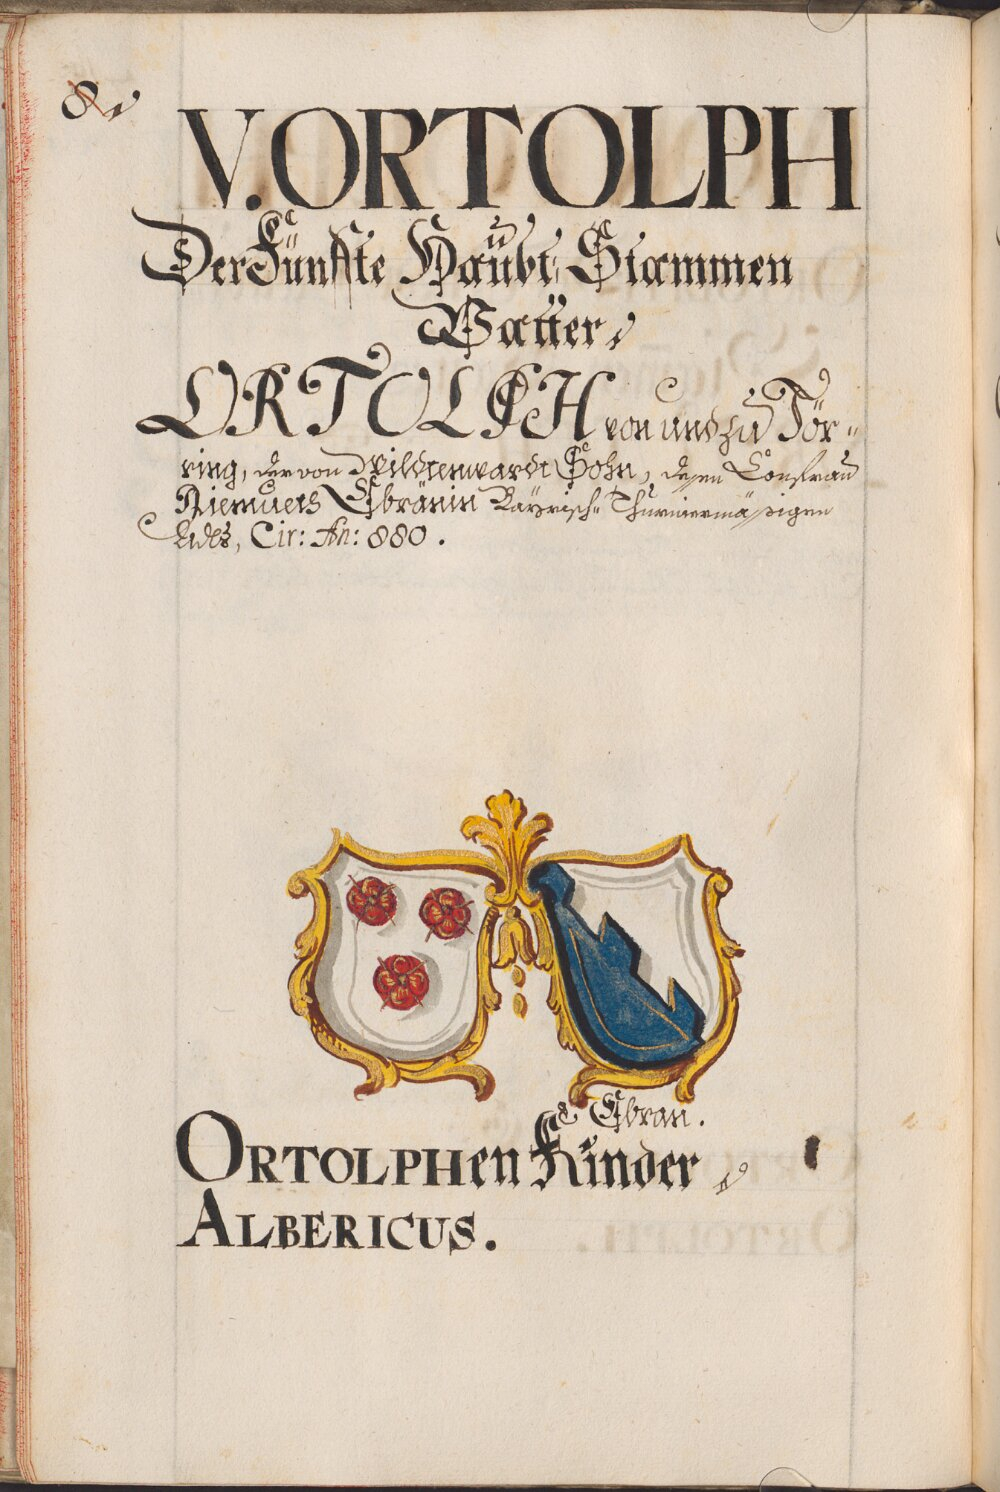 8
V. ORTOLPH
Der Fünffte Haübt Stammen
Vatter,
ORTOLPH von und zu Tör-
ring, der von Wildtenwardt Sohn, deßen Consfrau
Diemuets Ebranin Bayrisch- Thurniermäßigen
Adls, Cir: An: 880.
Ebran.
ORTOLPHen Kinder
ALBERICUS.